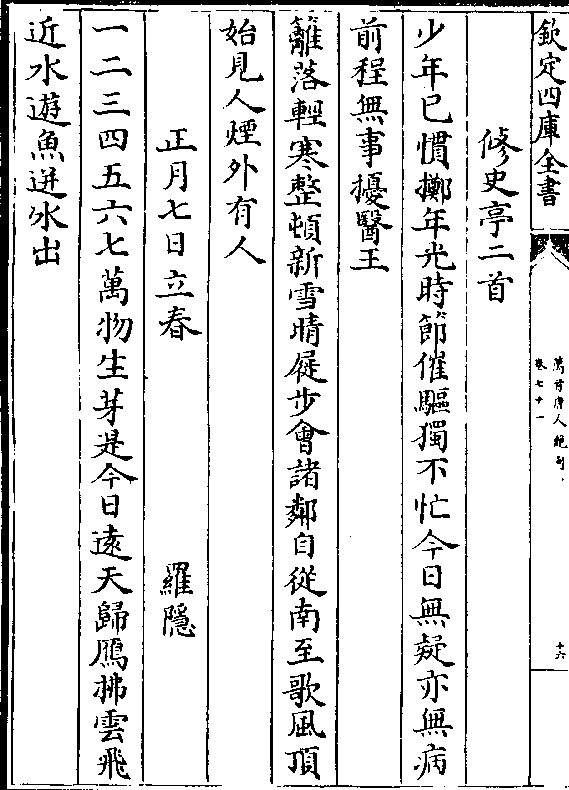 欽定四庫全書
萬首唐人絶句
卷七十一
十六
修史亭二首
少年已慣擲年光時節催驅獨不忙今日無疑亦無病
前程無事擾醫王
籬落輕寒整頓新雪晴屐步會諸鄰自從南至歌風頂
始見人煙外有人
正月七日立春 羅隱
一二三四五六七萬物生芽是今日遠天歸鴈拂雲飛
近水遊魚迸冰出